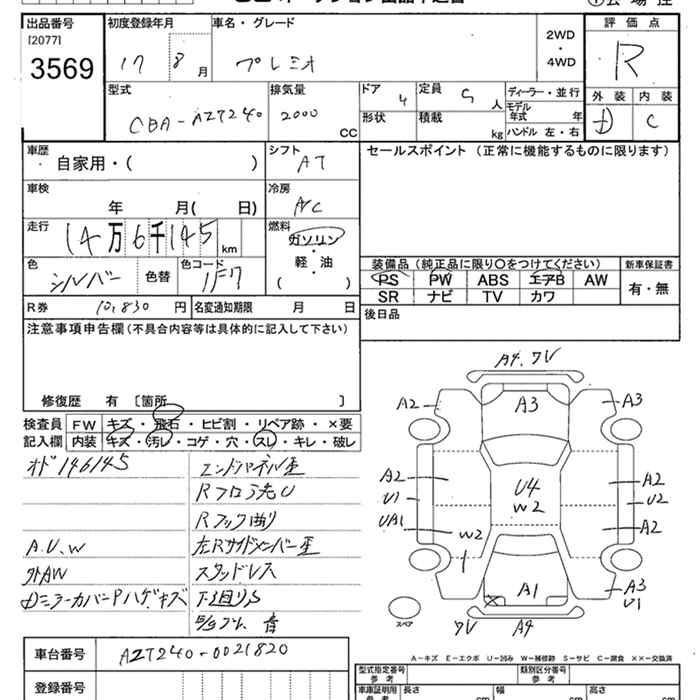 出品番号 初度登録年月 車名・グレード 2WD・4WD 評価点
[2077]
3569 17 8月 プレミオ R
型式 排気量 ドア 定員 ディーラー・並行 外装 内装
CBA-AZT240 2000 CC 4 5人 モデル年式 年 D C
形状 積載 kg ハンドル 左・右
車歴 シフト セールスポイント (正常に機能するものに限ります)
自家用・( ) AT
車検 冷房
年 月( 日) A/C
走行 燃料
14万6千145km ガソリン・軽・油
色 色替 色コード ( ) 装備品 (純正品に限り○をつけてください) 新車保証書
シルバー 1F7 PS PW ABS エアB AW 有・無
SR ナビ TV カワ
R券 10,830円 名変通知期限 月 日 後日品
注意事項申告欄(不具合内容等は具体的に記入して下さい)
修復歴 有 [箇所 ]
検査員 FW キズ・飛石・ヒビ割・リペア跡・×要
記入欄 内装 キズ・汚レ・コゲ・穴・スレ・キレ・破レ
オド146145 エンドパネル歪
Rフロア凹
Rフック曲り
A.U.W 左Rサイドメンバー歪
外AW スタッドレス
Dミラーカバー Pハゲキズ 下廻りS
音
A4.ワV
A2 A3 A3
A2 A2
U1 U4 U2
UA1 W2 A2
W2
A1 A3
U1
スペア ワV A4
A-キズ E-エクボ U-凹み W-補修跡 S-サビ C-腐食 ××-交換済
車台番号 AZT240-0021820
登録番号
型式指定番号 類別区分番号
参考 参考
車庫証明用 長さ 幅 高さ
参考 cm cm cm